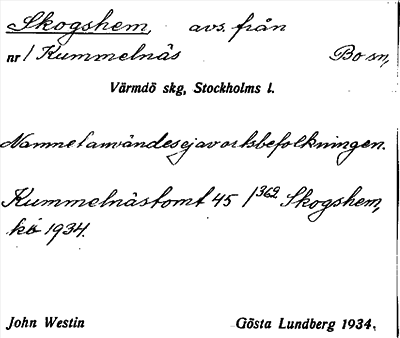 Skogshem, avs. från
nr 1 Kummelnäs Bo sn,
Värmdö skg, Stockholms l.
Namnet användes ej av ortsbefolkningen.
Kummelnästomt 45 1362 Skogshem,
kö 1934.
John Westin Gösta Lundberg 1934.